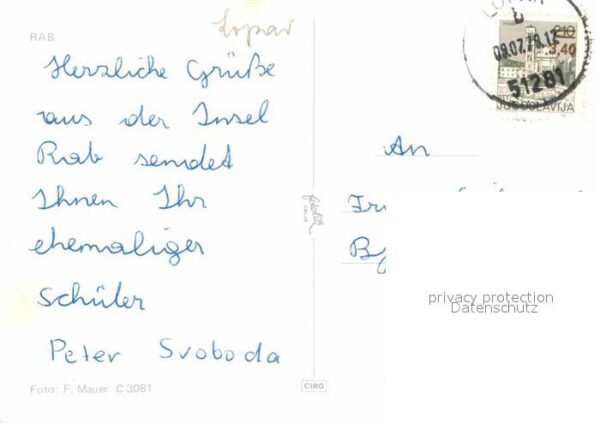 RAB
Lopar
Herzliche Grüße
aus der Insel
Rab sendet
Ihnen Ihr
ehemaliger
Schüler
Peter Svoboda
Foto: F. Mauer C 3081
CIRG
2.10
3,40
08.07.78.17
51281
JUGOSLAVIJA
An
privacy protection
Datenschutz